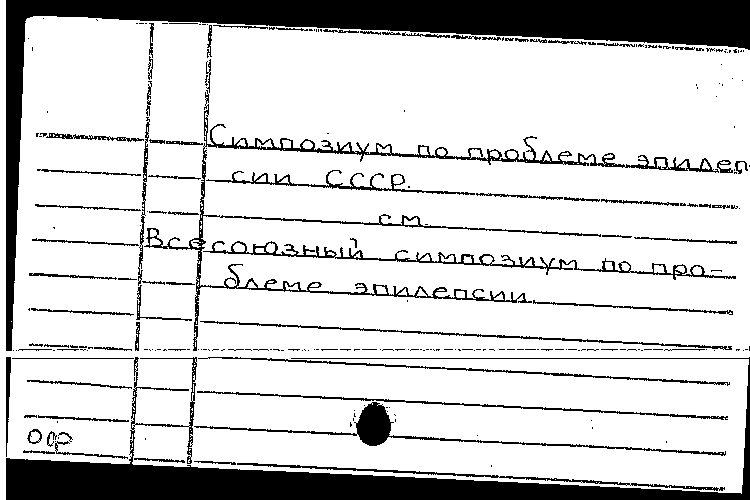 Симпозиум по проблеме эпилеп-
сии СССР.
см
Всесоюзный симпозиум по про-
блеме эпилепсии.